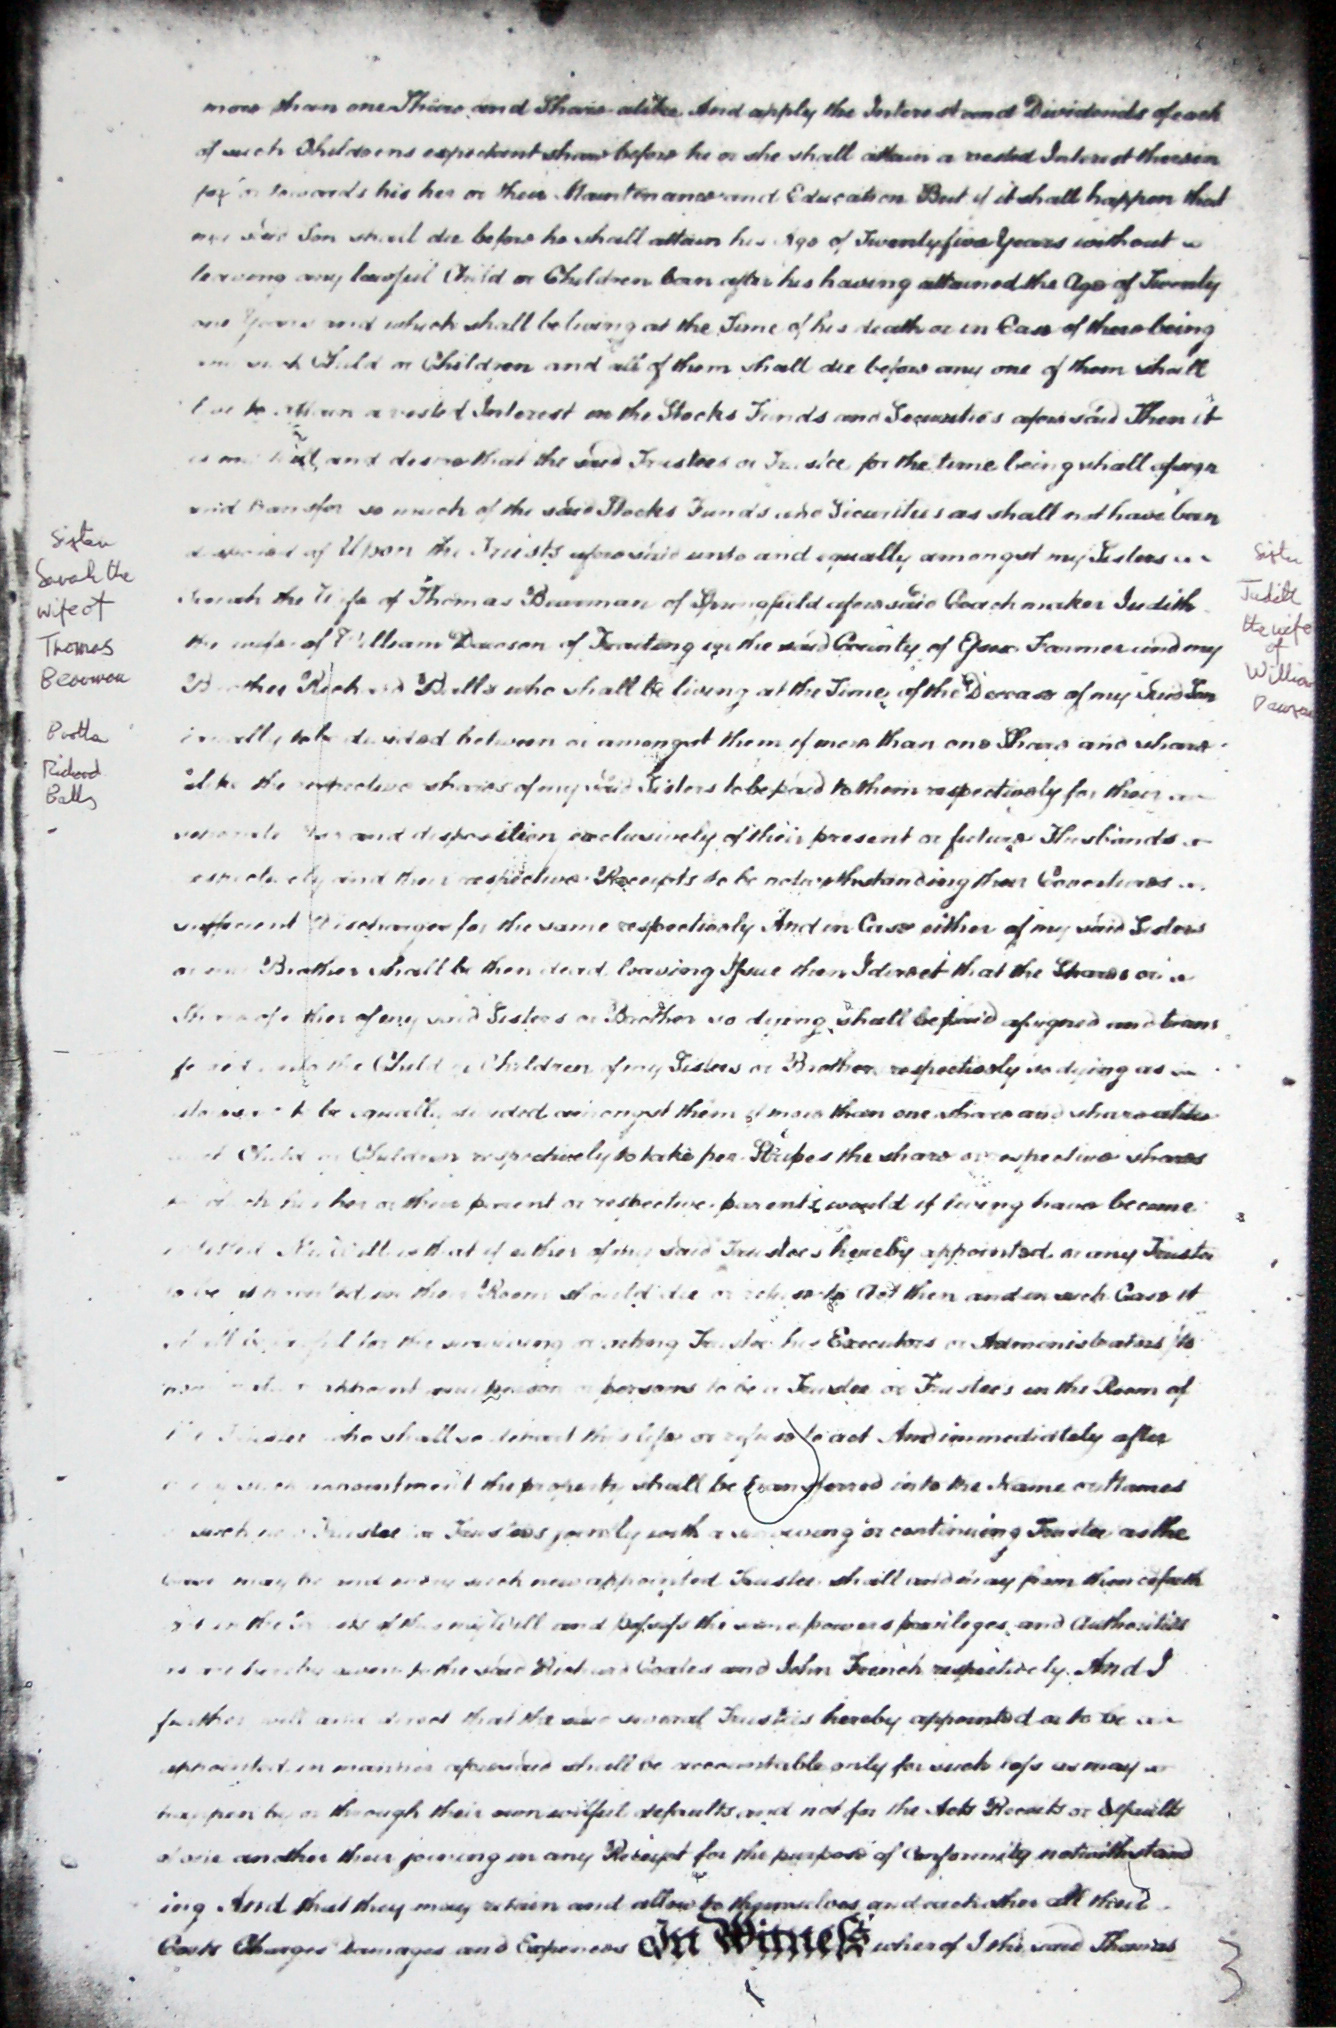 more than one Share and Share alike And apply the Interest and Dividends of each
of such Childrens expectant share before he or she shall attain a vested Interest therein
for or towards his her or their Maintenance and Education But if it shall happen that
my said Son shall die before he shall attain his Age of Twentyfive Years without
leaving any lawful Child or Children born after his having attained the Age of Twenty
one Years and which shall be living at the Time of his death or in Case of there being
any such Child or Children and all of them shall die before any one of them shall
live to attain a vested Interest in the Stocks Funds and Securities aforesaid Then it
is my Will and desire that the said Trustees or Trustee for the time being shall assign
and transfer so much of the said Stocks Funds and Securities as shall not have been
disposed of Upon the Trusts aforesaid unto and equally amongst my Sisters
Sarah the Wife of Thomas Bowman of Springfield aforesaid Coachmaker Judith
the wife of William Dawson of Frating in the said County of Essex Farmer and my
Brother Richard Balls who shall be living at the Time of the Decease of my said Son
equally to be divided between or amongst them if more than one Share and share
alike the respective shares of my said Sisters to be paid to them respectively for their
separate Use and disposition exclusively of their present or future Husbands
respectively and their respective Receipts to be notwithstanding their Covertures
sufficient Discharges for the same respectively And in Case either of my said Sisters
or my Brother shall be then dead leaving Issue then I direct that the Shares or
Share of either of my said Sisters or Brother so dying shall be paid assigned and trans
ferred unto the Child or Children of my Sisters or Brother respectively so dying as
aforesaid to be equally divided amongst them if more than one share and share alike
such Child or Children respectively to take per Stirpes the share or respective shares
to which his her or their parent or respective parents would if living have become
entitled My Will is that if either of my said Trustees hereby appointed or any Trustee
to be appointed in their Room should die or refuse to Act then and in such Case it
shall be lawful for the surviving or acting Trustee his Executors or Administrators to
nominate or appoint any person or persons to be a Trustee or Trustees in the Room of
the Trustee who shall so depart this life or refuse to act And immediately after
every such appointment the property shall be transferred into the Name or Names
of such new Trustee or Trustees jointly with a surviving or continuing Trustee as the
Case may be and every such new appointed Trustee shall and may from thenceforth
act in the Trusts of this my Will and possess the same powers privileges and Authorities
as are hereby given to the said Richard Coates and John French respectively. And I
further will and direct that the said several Trustees hereby appointed or to be
appointed in manner aforesaid shall be accountable only for such loss as may
happen by or through their own wilful defaults and not for the Acts Receipts or defaults
of one another their joining in any Receipt for the purpose of Conformity notwithstand
ing And that they may retain and allow to themselves and each other all their
Costs Charges Damages and Expences In Witness whereof I the said Thomas
Sister
Sarah the
wife of
Thomas
Bowman
Brother
Richard
Balls
Sister
Judith
the wife
of
William
Dawson
3